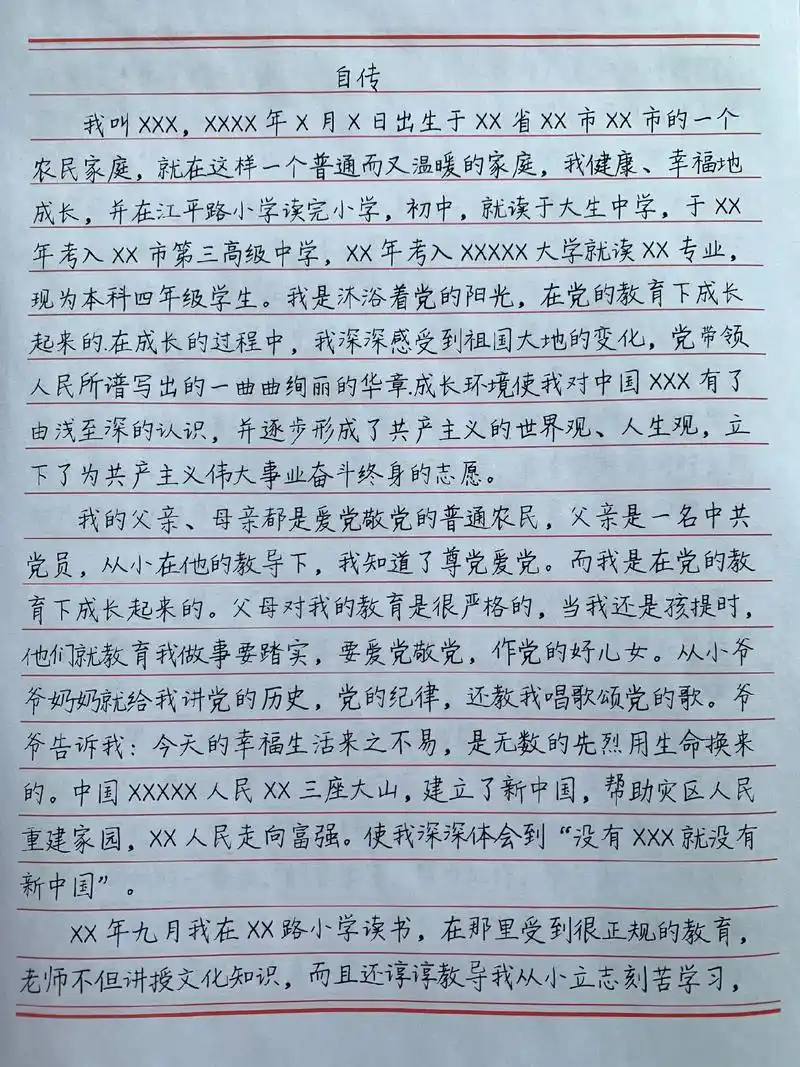 自传
我叫XXX，XXXX年X月X日出生于XX省XX市XX市的一个
农民家庭，就在这样一个普通而又温暖的家庭，我健康、幸福地
成长，并在江平路小学读完小学，初中，就读于大生中学，于XX
年考入XX市第三高级中学，XX年考入XXXXX大学就读XX专业，
现为本科四年级学生。我是沐浴着党的阳光，在党的教育下成长
起来的.在成长的过程中，我深深感受到祖国大地的变化，党带领
人民所谱写出的一曲曲绚丽的华章.成长环境使我对中国XXX有了
由浅至深的认识，并逐步形成了共产主义的世界观、人生观，立
下了为共产主义伟大事业奋斗终身的志愿。
我的父亲、母亲都是爱党敬党的普通农民，父亲是一名中共
党员，从小在他的教导下，我知道了尊党爱党。而我是在党的教
育下成长起来的。父母对我的教育是很严格的，当我还是孩提时，
他们就教育我做事要踏实，要爱党敬党，作党的好儿女。从小爷
爷奶奶就给我讲党的历史，党的纪律，还教我唱歌颂党的歌。爷
爷告诉我：今天的幸福生活来之不易，是无数的先烈用生命换来
的。中国XXXXX人民XX三座大山，建立了新中国，帮助灾区人民
重建家园，XX人民走向富强。使我深深体会到“没有XXX就没有
新中国”。
XX年九月我在XX路小学读书，在那里受到很正规的教育，
老师不但讲授文化知识，而且还谆谆教导我从小立志刻苦学习，